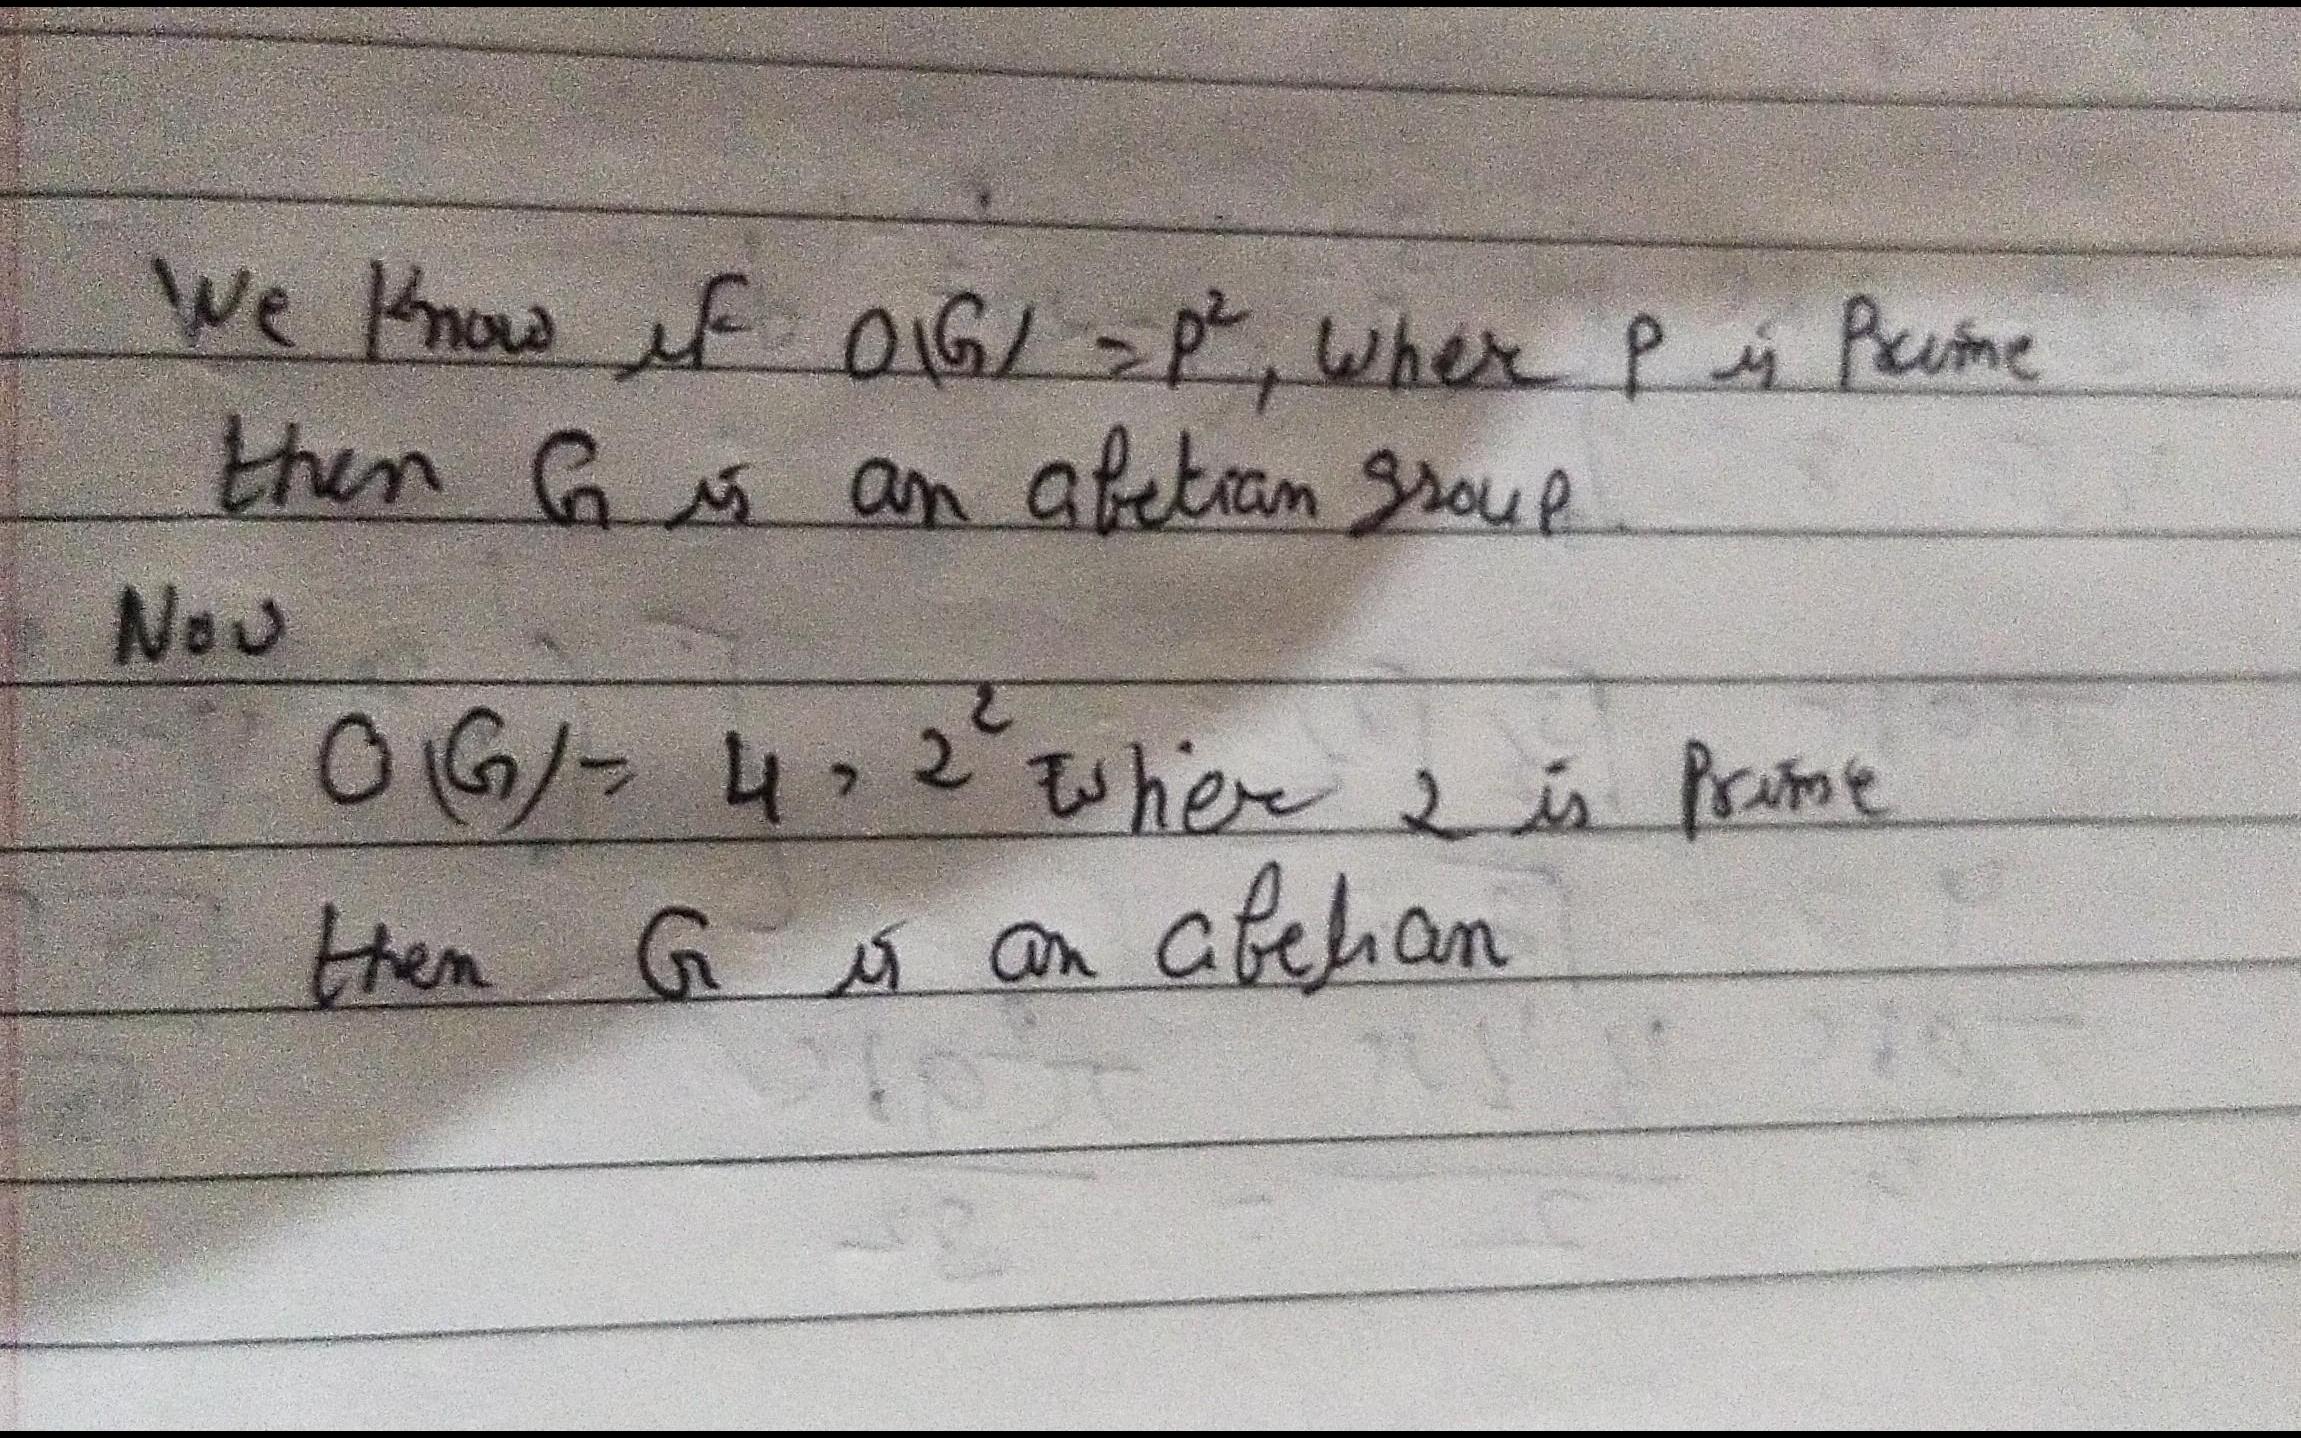 We know if O(G) = p², where p is Prime
then G is an abelian group
Now
O(G) = 4 = 2² where 2 is prime
then G is an abelian